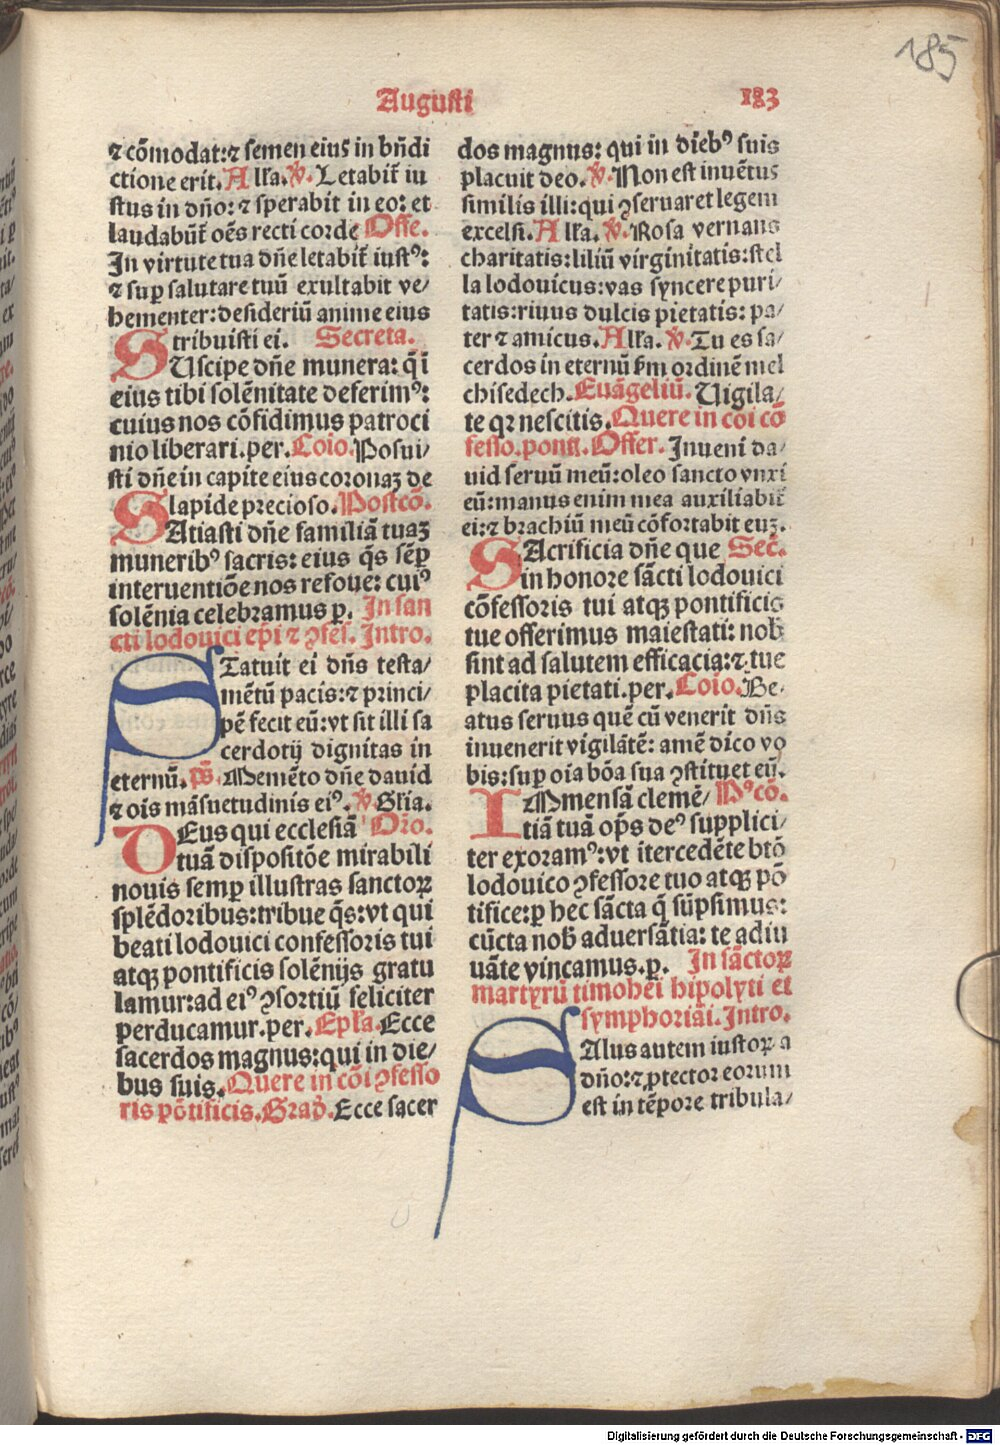 185
Augusti
183
⁊ cõmodat:⁊ semen eius in bñdi
ctione erit. Alľa. ℣. Letabiť iu
stus in dño: ⁊ sperabit in eo: et
laudabũť oẽs recti corde Offe.
In virtute tua dñe letabiť iustꝰ:
⁊ suꝑ salutare tuũ exultabit ve/
hementer: desideriũ anime eius
tribuisti ei. Secreta.
SUscipe dñe munera: q̃i
eius tibi solẽnitate deferimꝰ:
cuius nos cõfidimus patroci
nio liberari. per. Coio. Posui/
sti dñe in capite eius coronaꝫ de
lapide precioso. Postcõ.
SAtiasti dñe familiã tuaꝫ
muneribꝰ sacris: eius q̃s sẽꝑ
interuentiõe nos refoue: cuiꝰ
solẽnia celebramus ꝑ. In san
cti lodouici epĩ ⁊ ꝯfes. Intro.
STatuit ei dñs testa/
mẽtũ pacis: ⁊ princi/
pẽ fecit eũ: vt sit illi sa
cerdotij dignitas in
eternũ. p̃s. Memẽto dñe dauid
⁊ ois mãsuetudinis eiꝰ. ℣. Gľia.
DEus qui ecclesiã Orõ.
tuã dispositõe mirabili
nouis semꝑ illustras sanctoꝝ
splẽdoribus: tribue q̃s: vt qui
beati lodouici confessoris tui
atqꝫ pontificis solẽnijs gratu
lamur: ad eiꝰ ꝯsortiũ feliciter
perducamur. per. Epľa. Ecce
sacerdos magnus: qui in die/
bus suis. Quere in cõi ꝯfesso
ris põtificis. Grad̃. Ecce sacer
dos magnus: qui in diebꝰ suis
placuit deo. ℣. Non est inuẽtus
similis illi: qui ꝯseruaret legem
excelsi. Alľa. ℣. Rosa vernans
charitatis: liliũ virginitatis: stel
la lodouicus: vas syncere puri/
tatis: riuus dulcis pietatis: pa/
ter ⁊ amicus. Alľa. ℣. Tu es sa/
cerdos in eternũ ẜm ordinẽ mel
chisedech. Euãgeliũ. Uigila/
te qꝛ nescitis. Quere in cõi cõ
fesso. ponti. Offer. Inueni da/
uid seruũ meũ: oleo sancto vnxi
eũ: manus enim mea auxiliabiť
ei: ⁊ brachiũ meũ cõfortabit euꝫ.
SAcrificia dñe que Sec̃.
in honore sãcti lodouici
cõfessoris tui atqꝫ pontificis
tue offerimus maiestati: nob̃
sint ad salutem efficacia: ⁊ tue
placita pietati. per. Coio. Be/
atus seruus quẽ cũ venerit dñs
inuenerit vigilãtẽ: amẽ dico vo
bis: suꝑ oia bõa sua ꝯstituet eũ.
IMmensã clemẽ/ Pꝰcõ.
tiã tuã op̃s deꝰ supplici/
ter exoramꝰ: vt itercedẽte btõ
lodouico ꝯfessore tuo atqꝫ põ
tifice: ꝑ hec sãcta q̃ sũpsimus:
cũcta nob̃ aduersãtia: te adiu
uãte vincamus. ꝑ. In sãctoꝝ
martyrũ timothei hipolyti et
symphoriãi. Intro.
SAlus autem iustoꝝ a
dño: ⁊ ꝓtector eorum
est in tẽpore tribula/
Digitalisierung gefördert durch die Deutsche Forschungsgemeinschaft - DFG